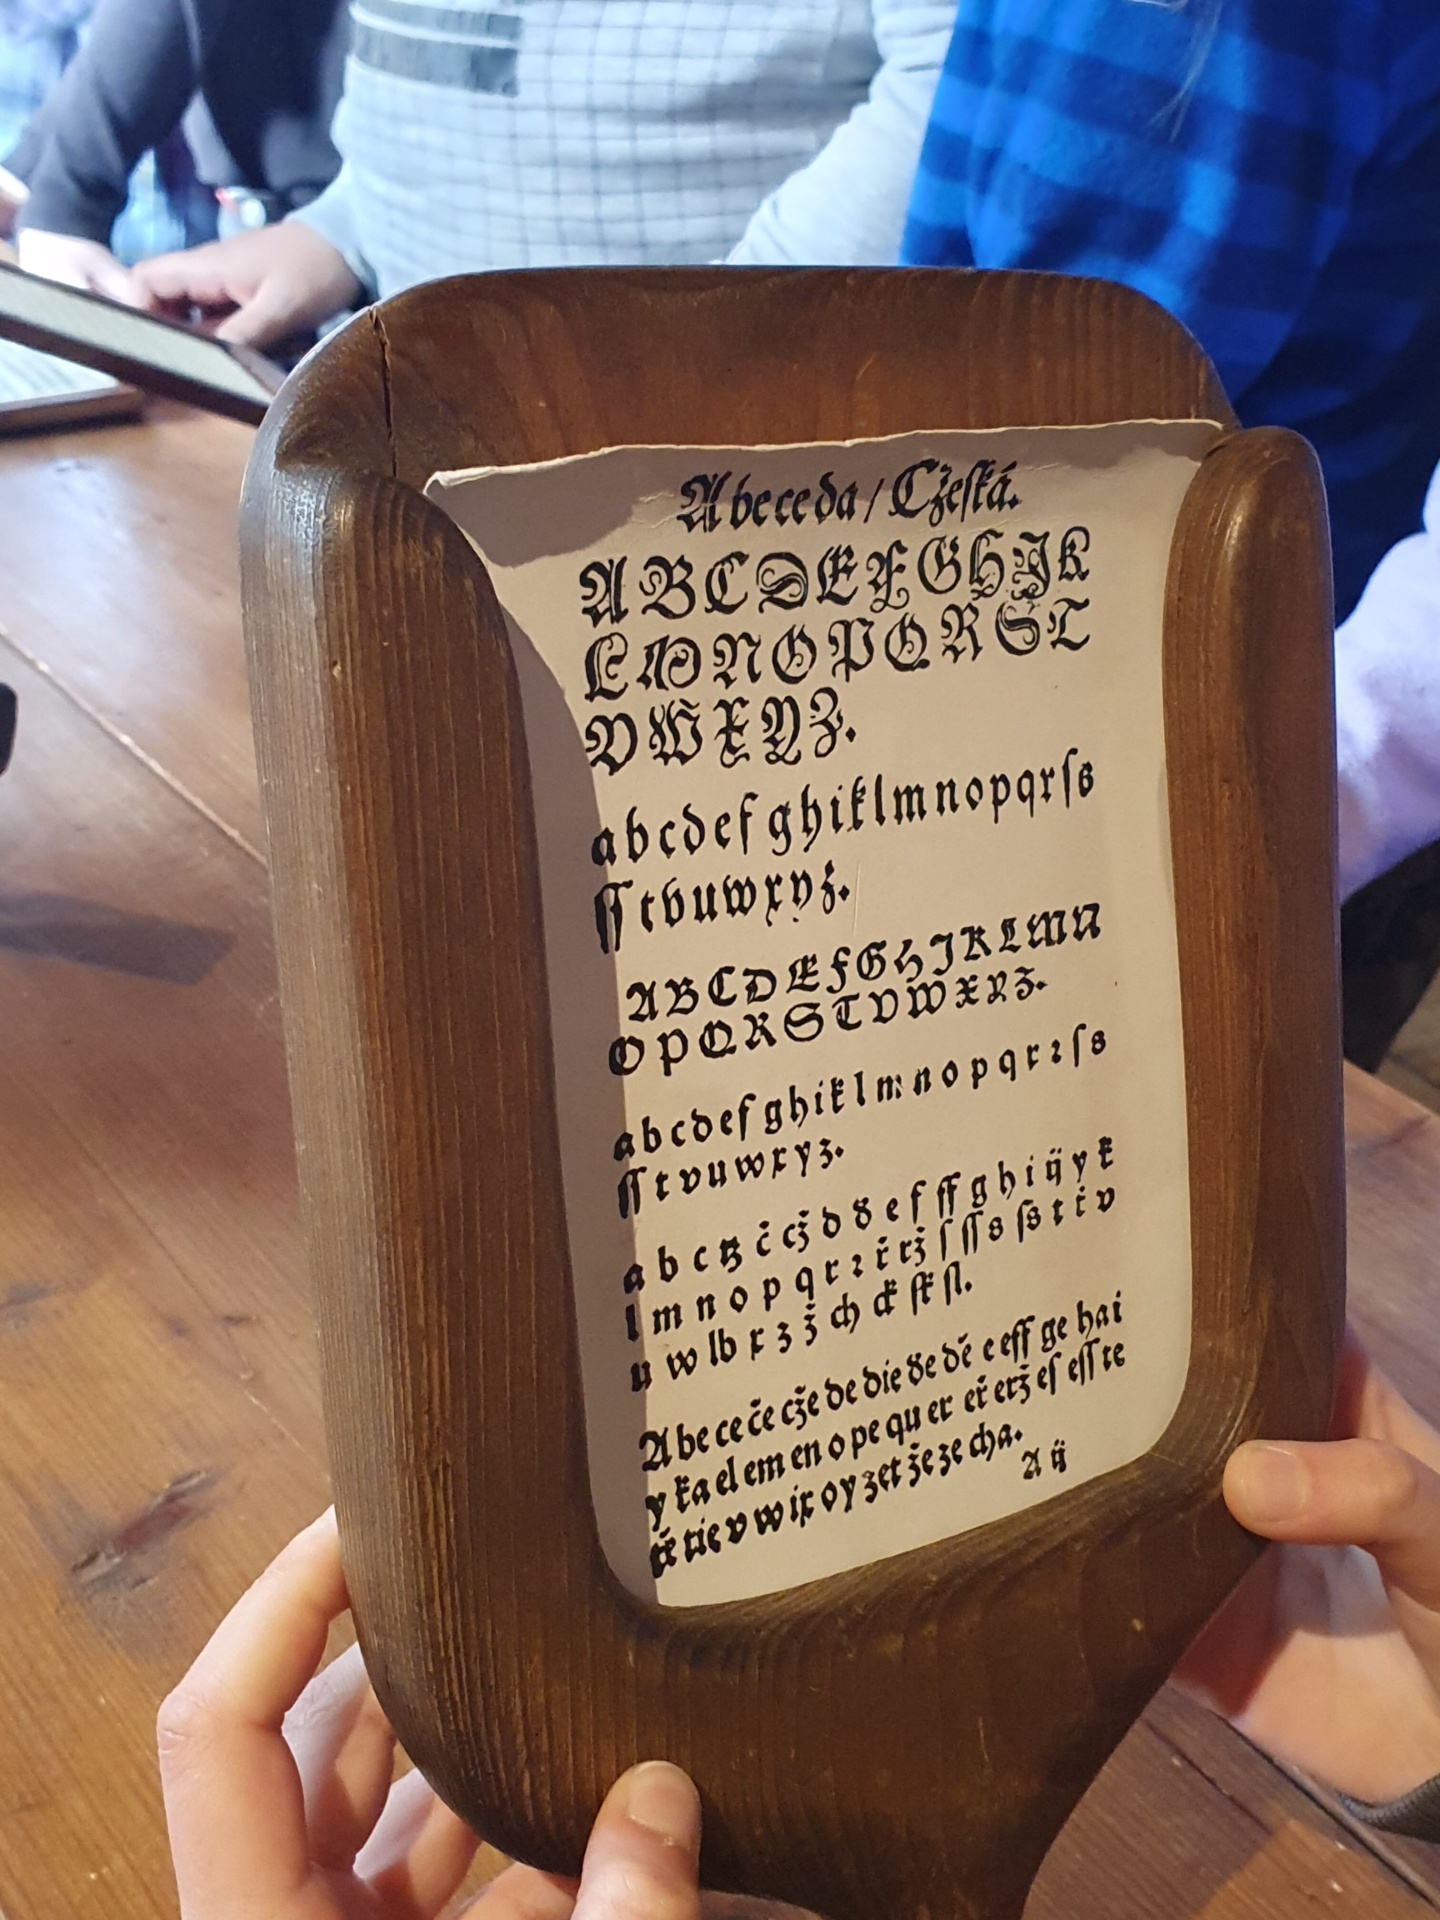 Abeceda / Cżeſká.
A B C D E F G H J K
L M N O P Q R S T
V W X Y Z.
a b c d e f g h i k l m n o p q r ſ s
ſſ t v u w x y ż.
A B C D E F G H J K L M N
O P Q R S T V W X Y Z.
a b c d e f g h i k l m n o p q r ꝛ ſ s
ſſ t v u w x y z.
a b c tz č cż d ď e f ff g h i ij y k
l m n o p q r ꝛ ř rż ſ ſſ s ſs t ť v
u w lb x z ż ch ck ſk ſl.
A be ce če cże de die ďe dě e eff ge ha i
y ka el em en o pe qu er eř erż eſ eſſ te
tě tie v w ix oy zet że ze cha.
A ij